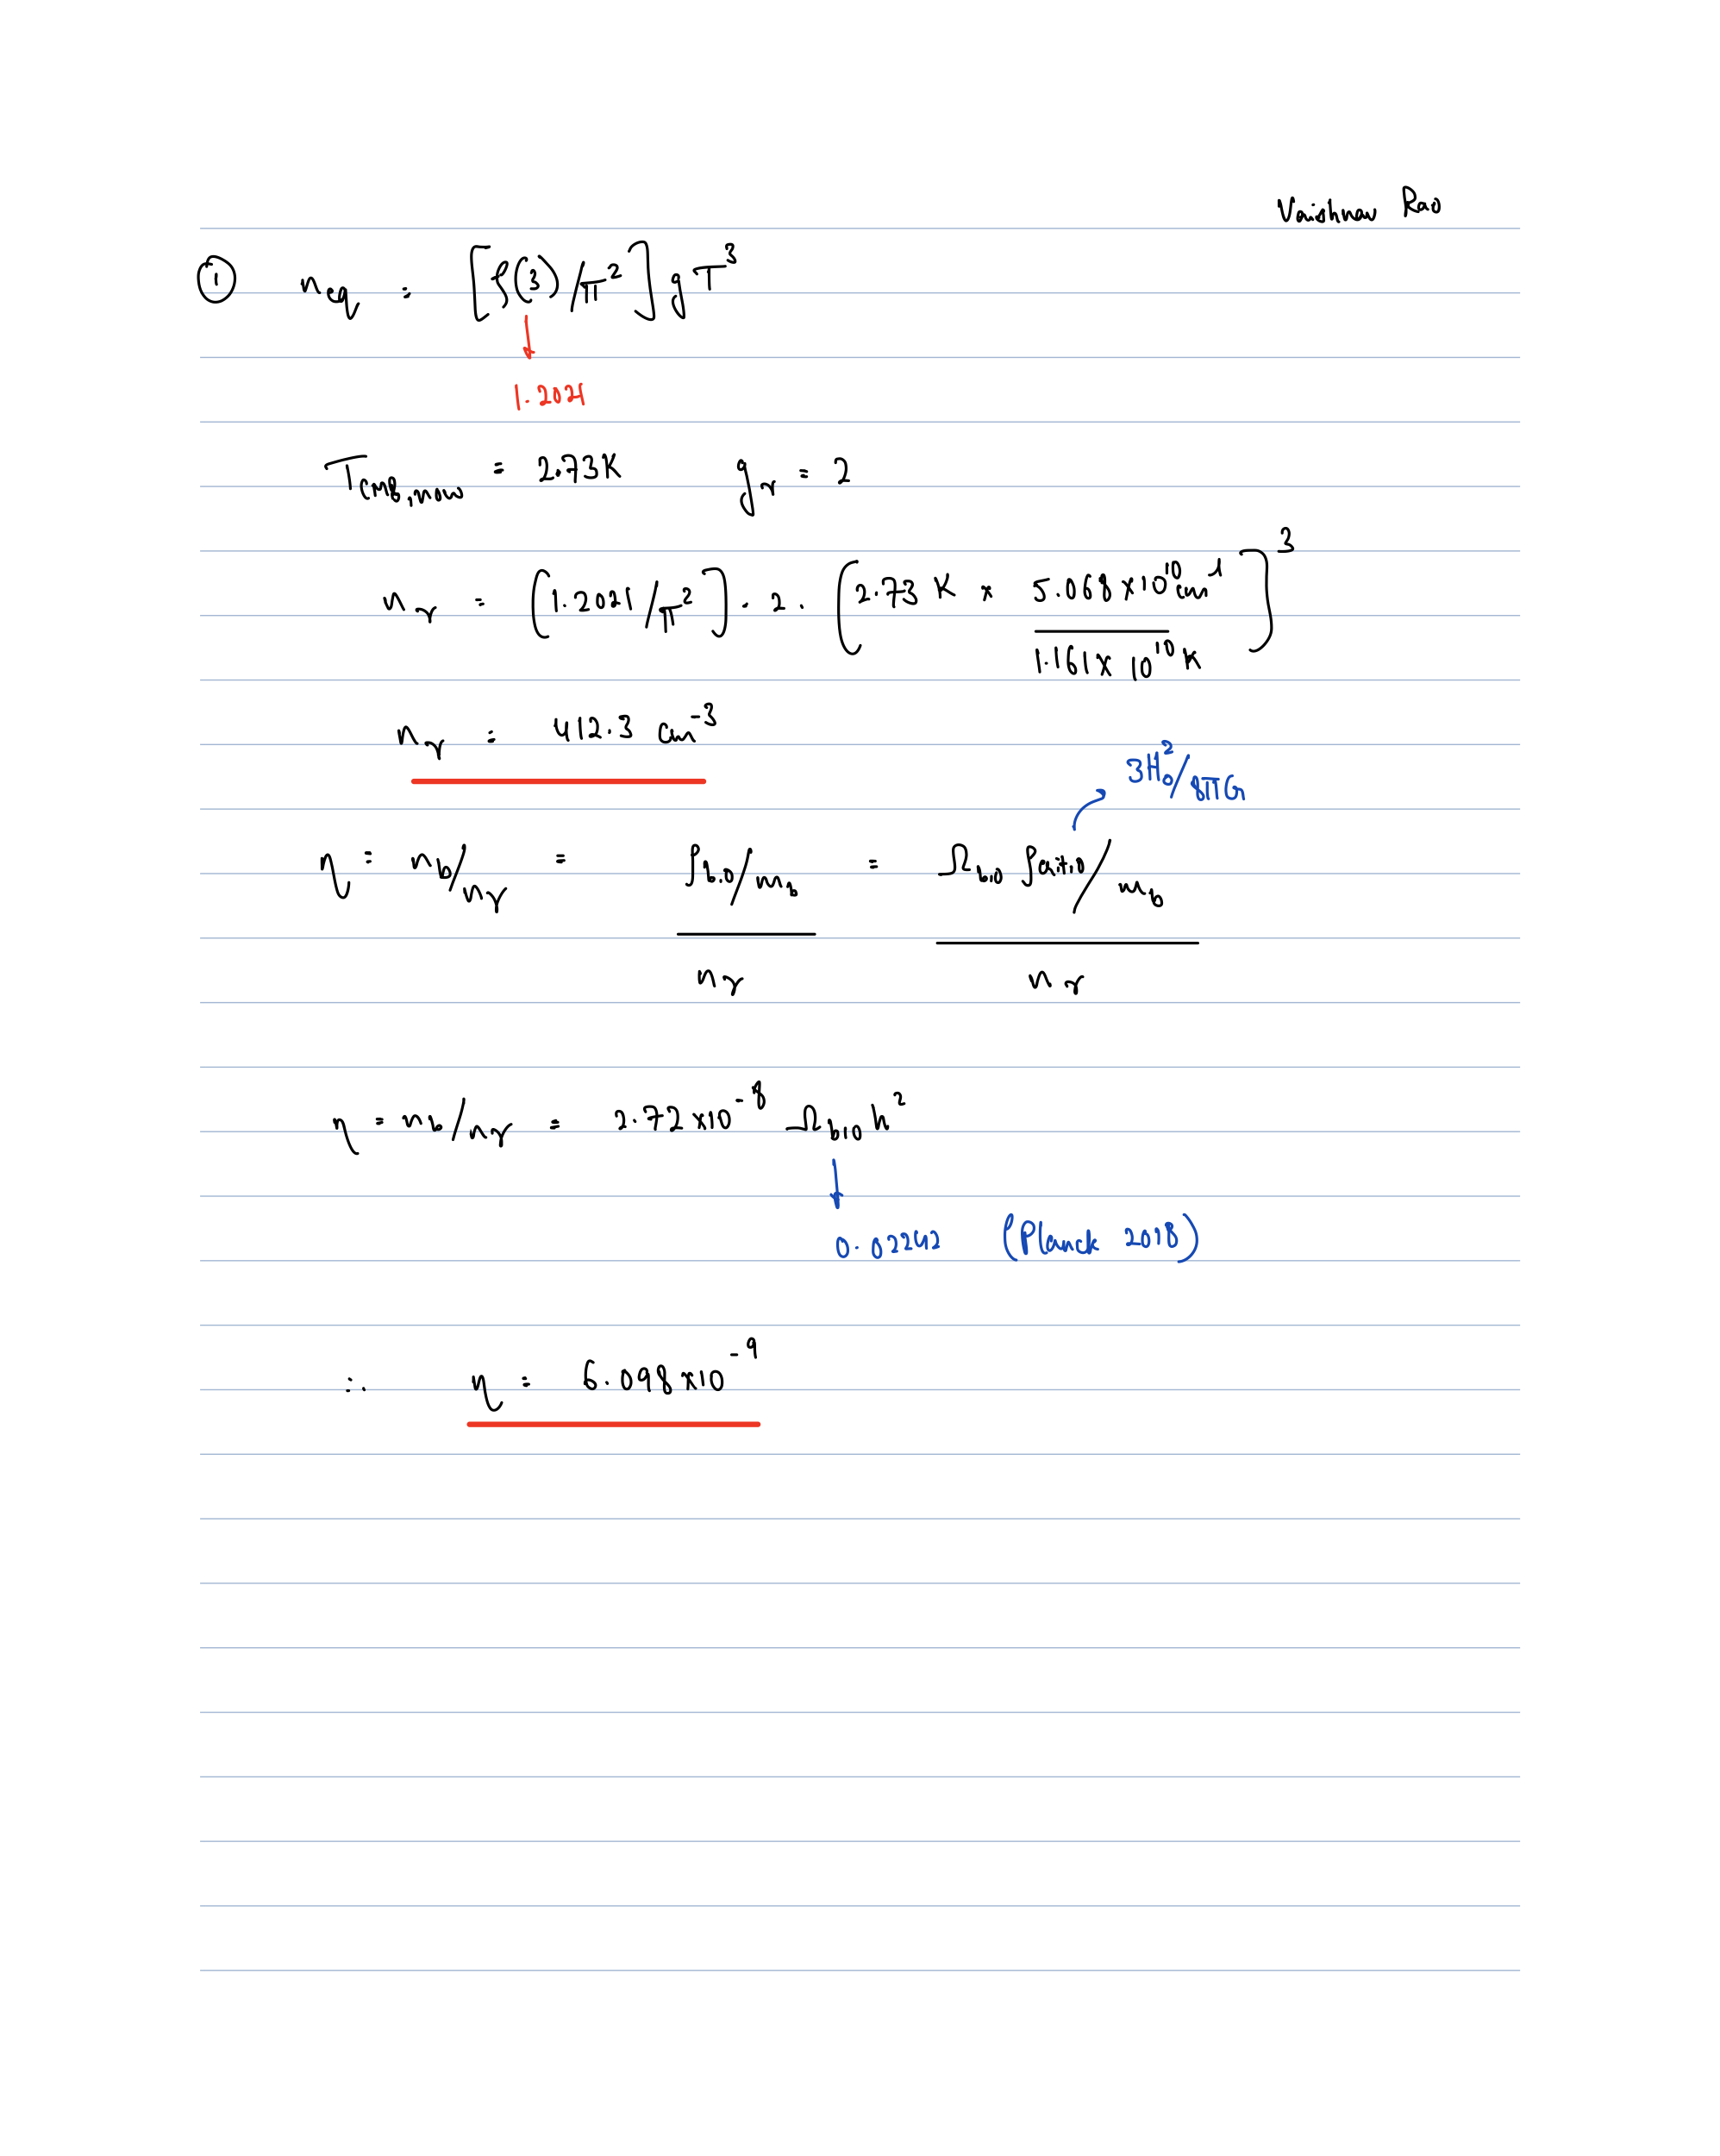 Vaishnav Rao
① n_eq = [ζ(3)/π²] g T³
↓
1.2021
T_CMB,now = 2.73K g_γ = 2
n_γ = [1.2021/π²] · 2 · [2.73 K × 5.068×10¹⁰ cm⁻¹ / 1.161×10¹⁰ K]³
n_γ = 412.3 cm⁻³
3H₀²/8πG
η = n_b/n_γ = (ρ_b,0/m_b)/n_γ = (Ω_b,0 ρ_crit,0/m_b)/n_γ
η = n_b/n_γ = 2.72×10⁻⁸ Ω_b,0 h²
↓
0.02242 (Planck 2018)
∴ η = 6.098×10⁻⁹